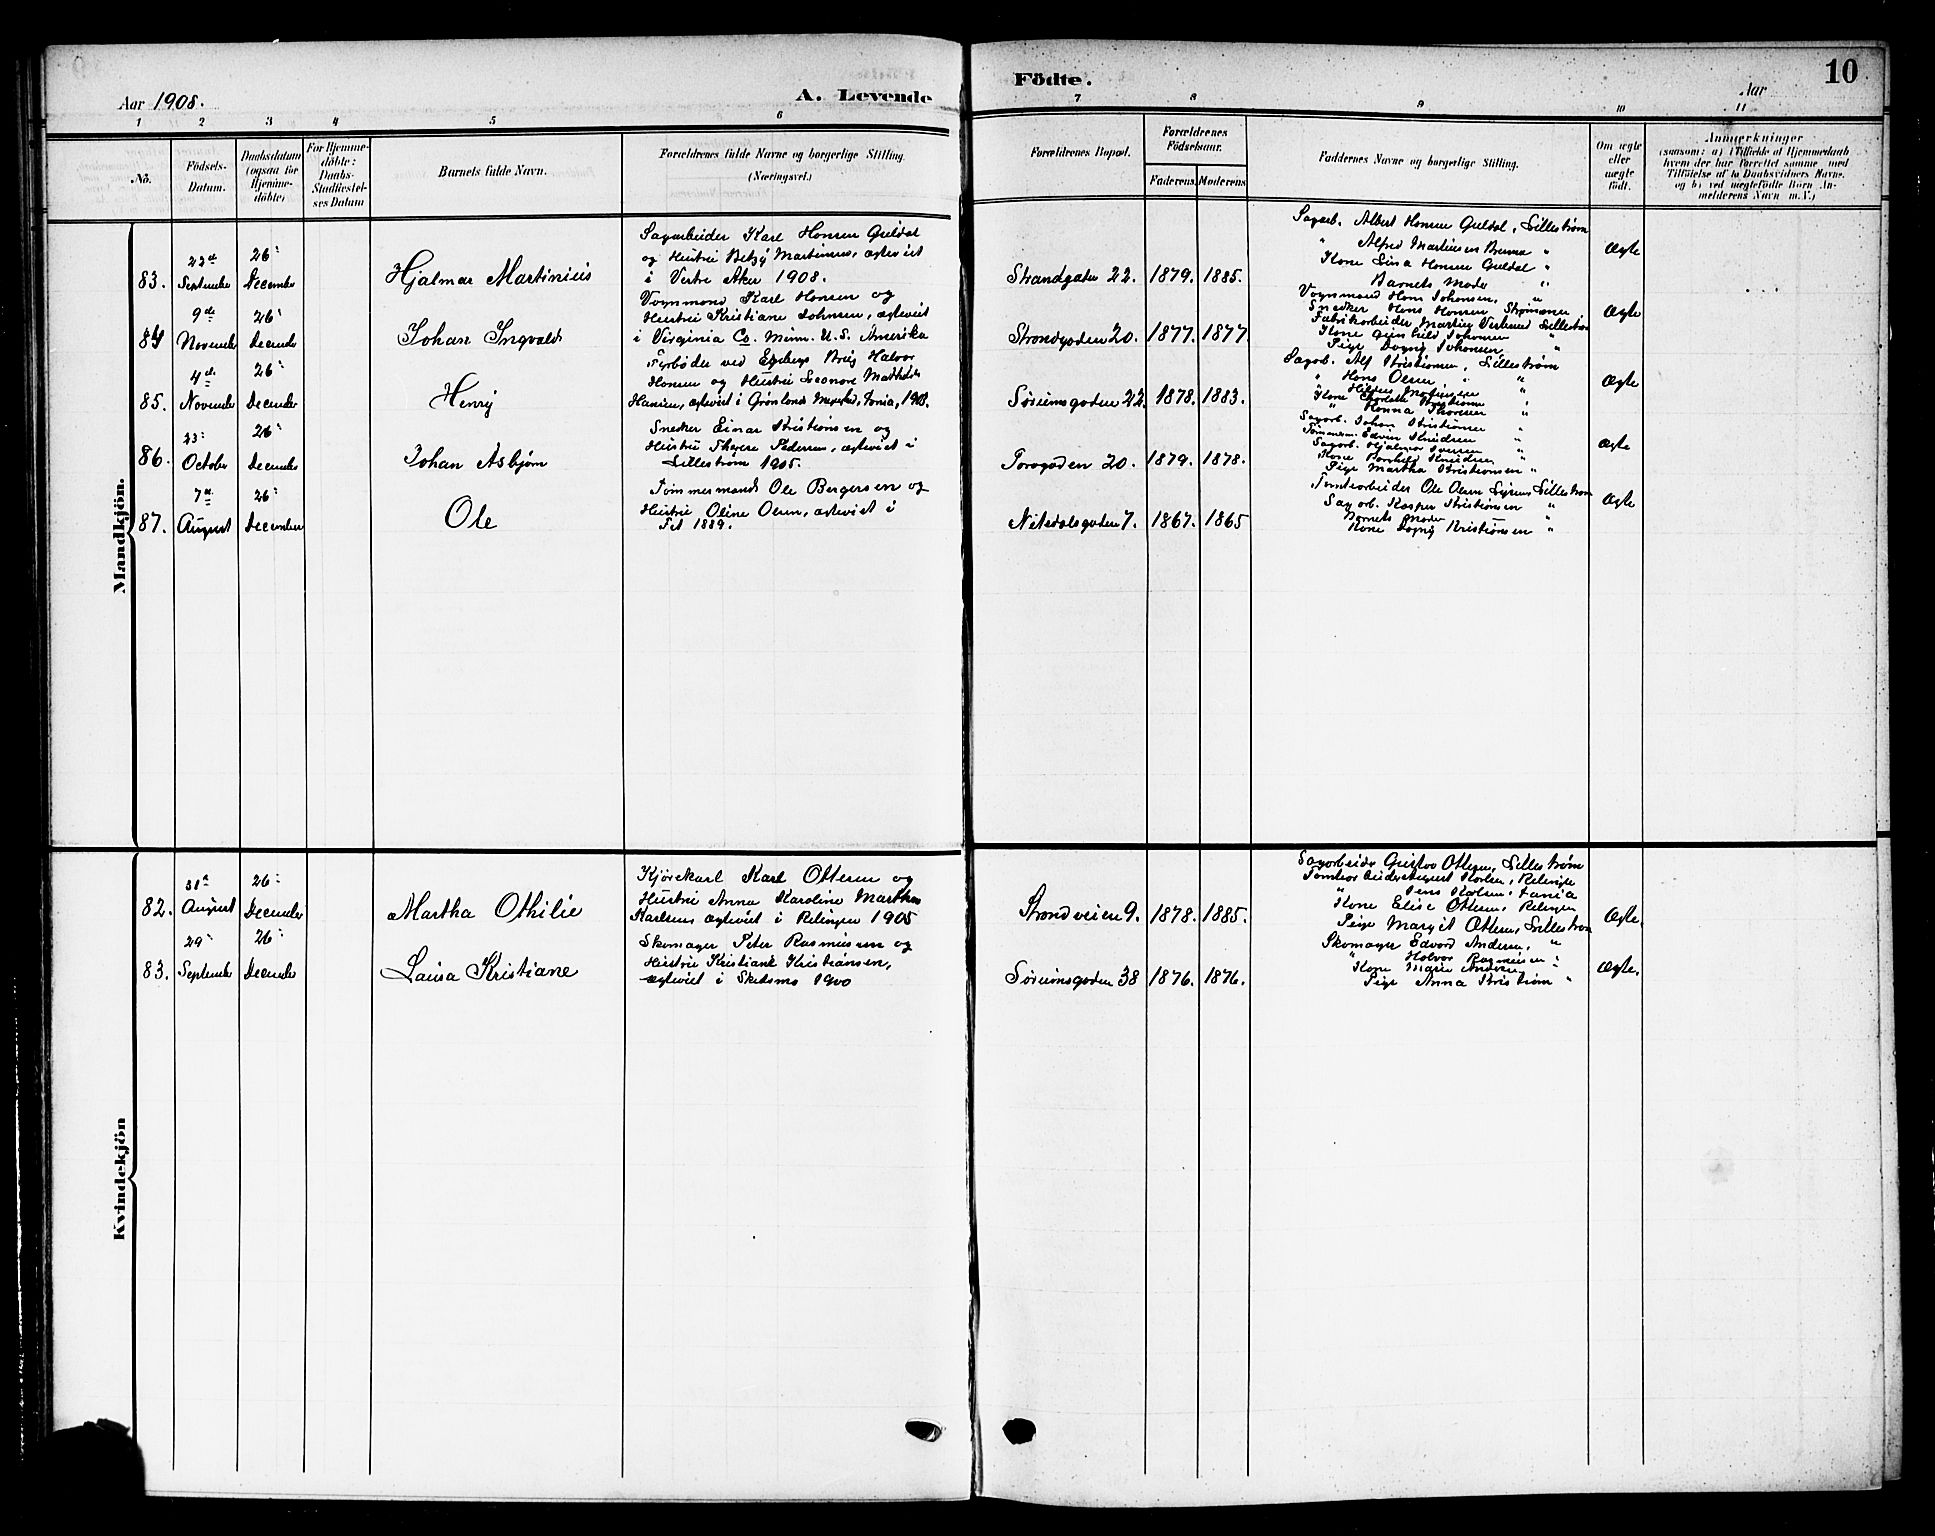 Aar 1908.
A. Levende
Födte.
10
Aar
1 2 3 4 5 6 7 8 9 10 11
No.
Födsels-
Datum.
Daabsdatum
(ogsaa for
Hjemme-
döbte)
For Hjemme-
döbte:
Daabs-
Stadfæstel-
ses Datum
Barnets fulde Navn.
Forældrenes fulde Navne og borgerlige Stilling.
(Næringsvei.)
Forældrenes Bopæl.
Forældrenes
Födselsaar.
Faderens. Moderens
Faddernes Navne og borgerlige Stilling.
Om ægte
eller
uægte
födt.
Anmærkninger
(saasom: a) i Tilfælde af Hjemmedaab
hvem der har forrettet samme med
Tilföielse af to Daabsvidners Navne.
og b) ved uægtefödte Börn An-
melderens Navn m.V.)
Mandkjön.
83.
22de
September
26:
December
Hjalmar Martinius
Sagarbeider Karl Hansen Guldal
og Hustru Betzy Martinsen, egteviet
i Vestre Aker 1908.
Strandgaten 22. 1879. 1885.
Sagarb. Albert Hansen Guldal, Lillestrøm
" Alfred Martinsen "
Kone Lina Hansen Guldal "
Barnets Moder "
Ægte
84
9de
November
26:
December
Johan Ingvald
Vognmand Karl Hansen og
Hustru Kristiane Johnsen, egteviet
i Virginia Co. Minn. U.S. Amerika
Strandgaden 20. 1877. 1877.
Vognmand Hans Johansen, "
Snedker Hans Hansen Strømmen
Fabrikarbeider Martin Lillestrøm
Kone Gunhild Johansen "
Pige Dagny Johansen, "
Ægte
85.
4de
November
26:
December
Henry
Fyrbøder ved Brug Halvor
Hansen og Hustru Leonore Mathilde
Hansen, egteviet i Grønlands
Sørumsgaden 22. 1878. 1883.
Sagarb. Alf Kristiansen, Lillestrøm
" Hans Olsen "
Kone Charlotte Kristiansen "
" Hanna Thoresen "
Ægte
86.
23:
October
26:
December
Johan Asbjørn
Snedker Einar Kristiansen og
Hustru Pedersen, egteviet i
Lillestrøm 1905.
Torvgaden 20. 1879. 1878.
Sagarb. Johan Kristiansen "
Edvin Knudsen "
Sagarb. Hjalmar Iversen "
Kone Borghild Knudsen "
Pige Martha Kristiansen "
Ægte
87.
7de
August
26:
December
Ole
Tømmermand Ole Bergersen og
Hustru Oline Olsen, egteviet i
Fet 1889.
Nitedalsgaden 7. 1867. 1865
Tomtearbeider Ole Olsen Lillestrøm
Sagarb. Kasper Kristiansen "
Barnets Moder "
Kone Dagny Kristiansen "
Ægte
Kvindekjön
82.
31te
August
26:
December
Martha Othilie
Kjørekarl Karl Ottersen og
Hustru Anna Karoline Marthea
Karlsen egteviet i Rælingen 1905
Strandveien 9. 1878. 1885.
Sagarbeider Gustav Ottersen, Lillestrøm
Tomtearbeider August Karlsen, Rælingen
" Jens Karlsen,
Kone Elise Ottersen, Rælingen
Pige Margit Ottersen, Lillestrøm
Ægte.
83.
29:
September
26:
December
Laura Kristiane
Skomager Peter Rasmussen og
Hustru Kristiane Kristiansen,
egteviet i Skedsmo 1900
Sørumsgaden 38 1876. 1876.
Skomager Edvard Andersen, "
" Halvor Rasmussen "
Kone Marie Andersen "
Pige Anna Kristiansen "
Ægte.